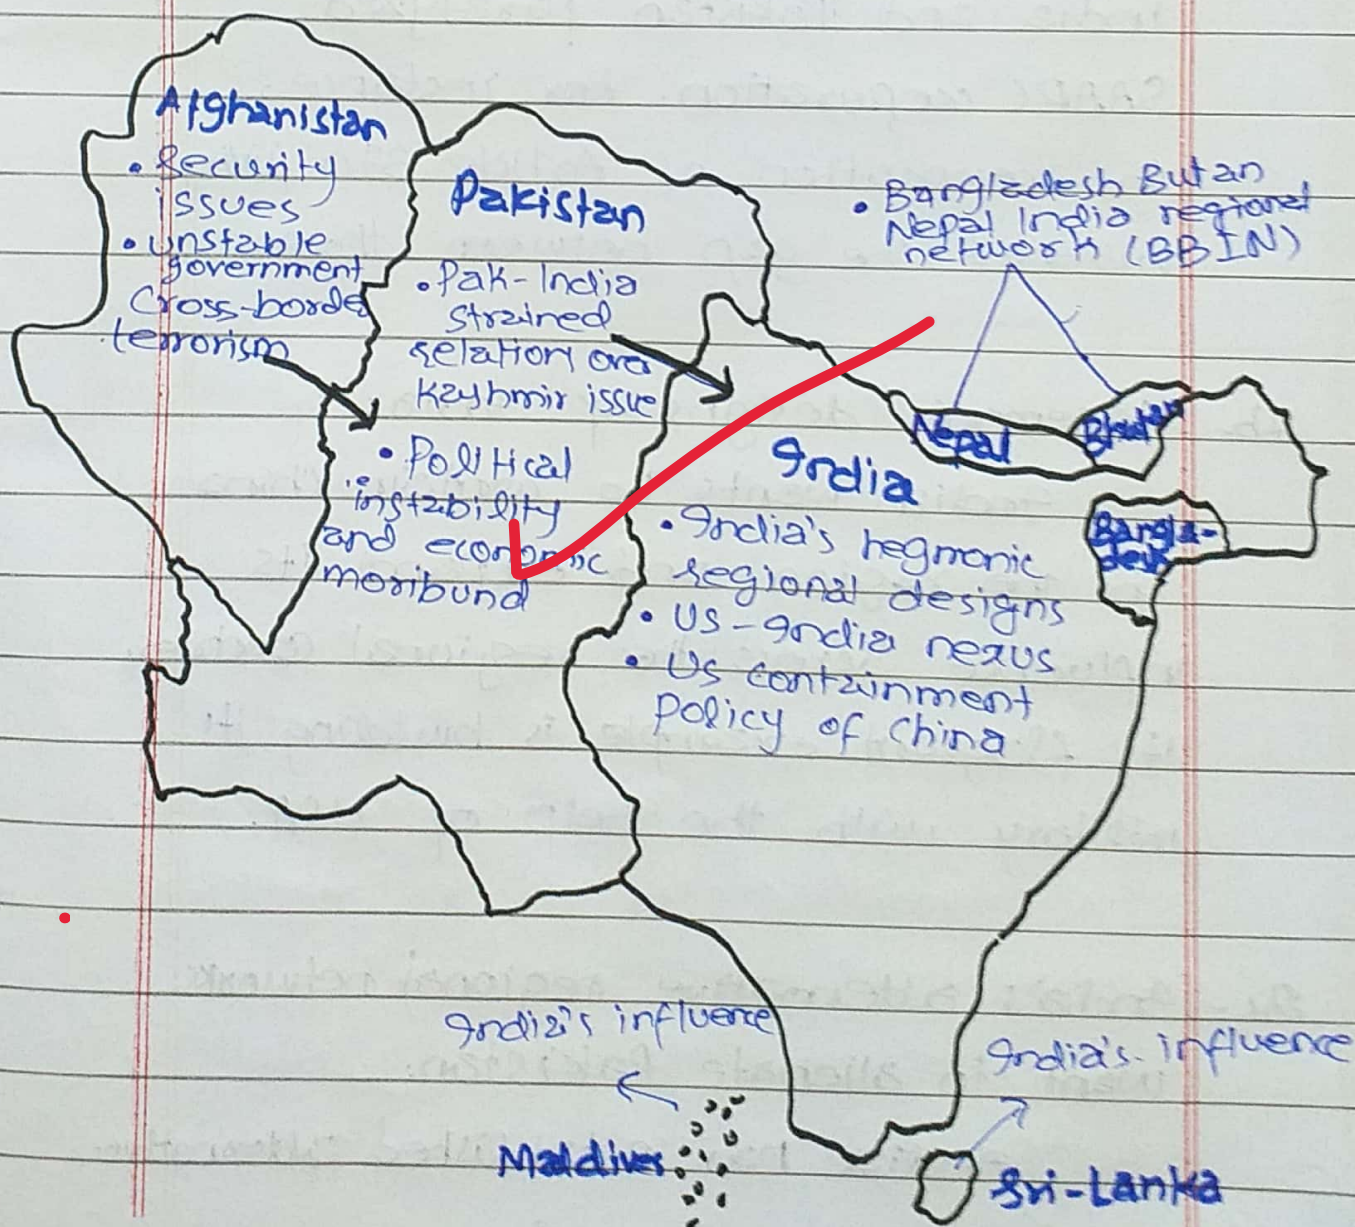 Afghanistan
• Security
issues
• unstable
government
Cross-border
terrorism
Pakistan
• Pak-India
strained
relation over
Kashmir issue
• Political
instability
and economic
moribund
• Bangladesh Butan
Nepal India regional
network (BBIN)
Nepal
Bhutan
Bangla-
desh
India
• India's hegmonic
regional designs
• US-India nexus
• US containment
policy of China
India's influence
India's influence
Maldives
Sri-Lanka